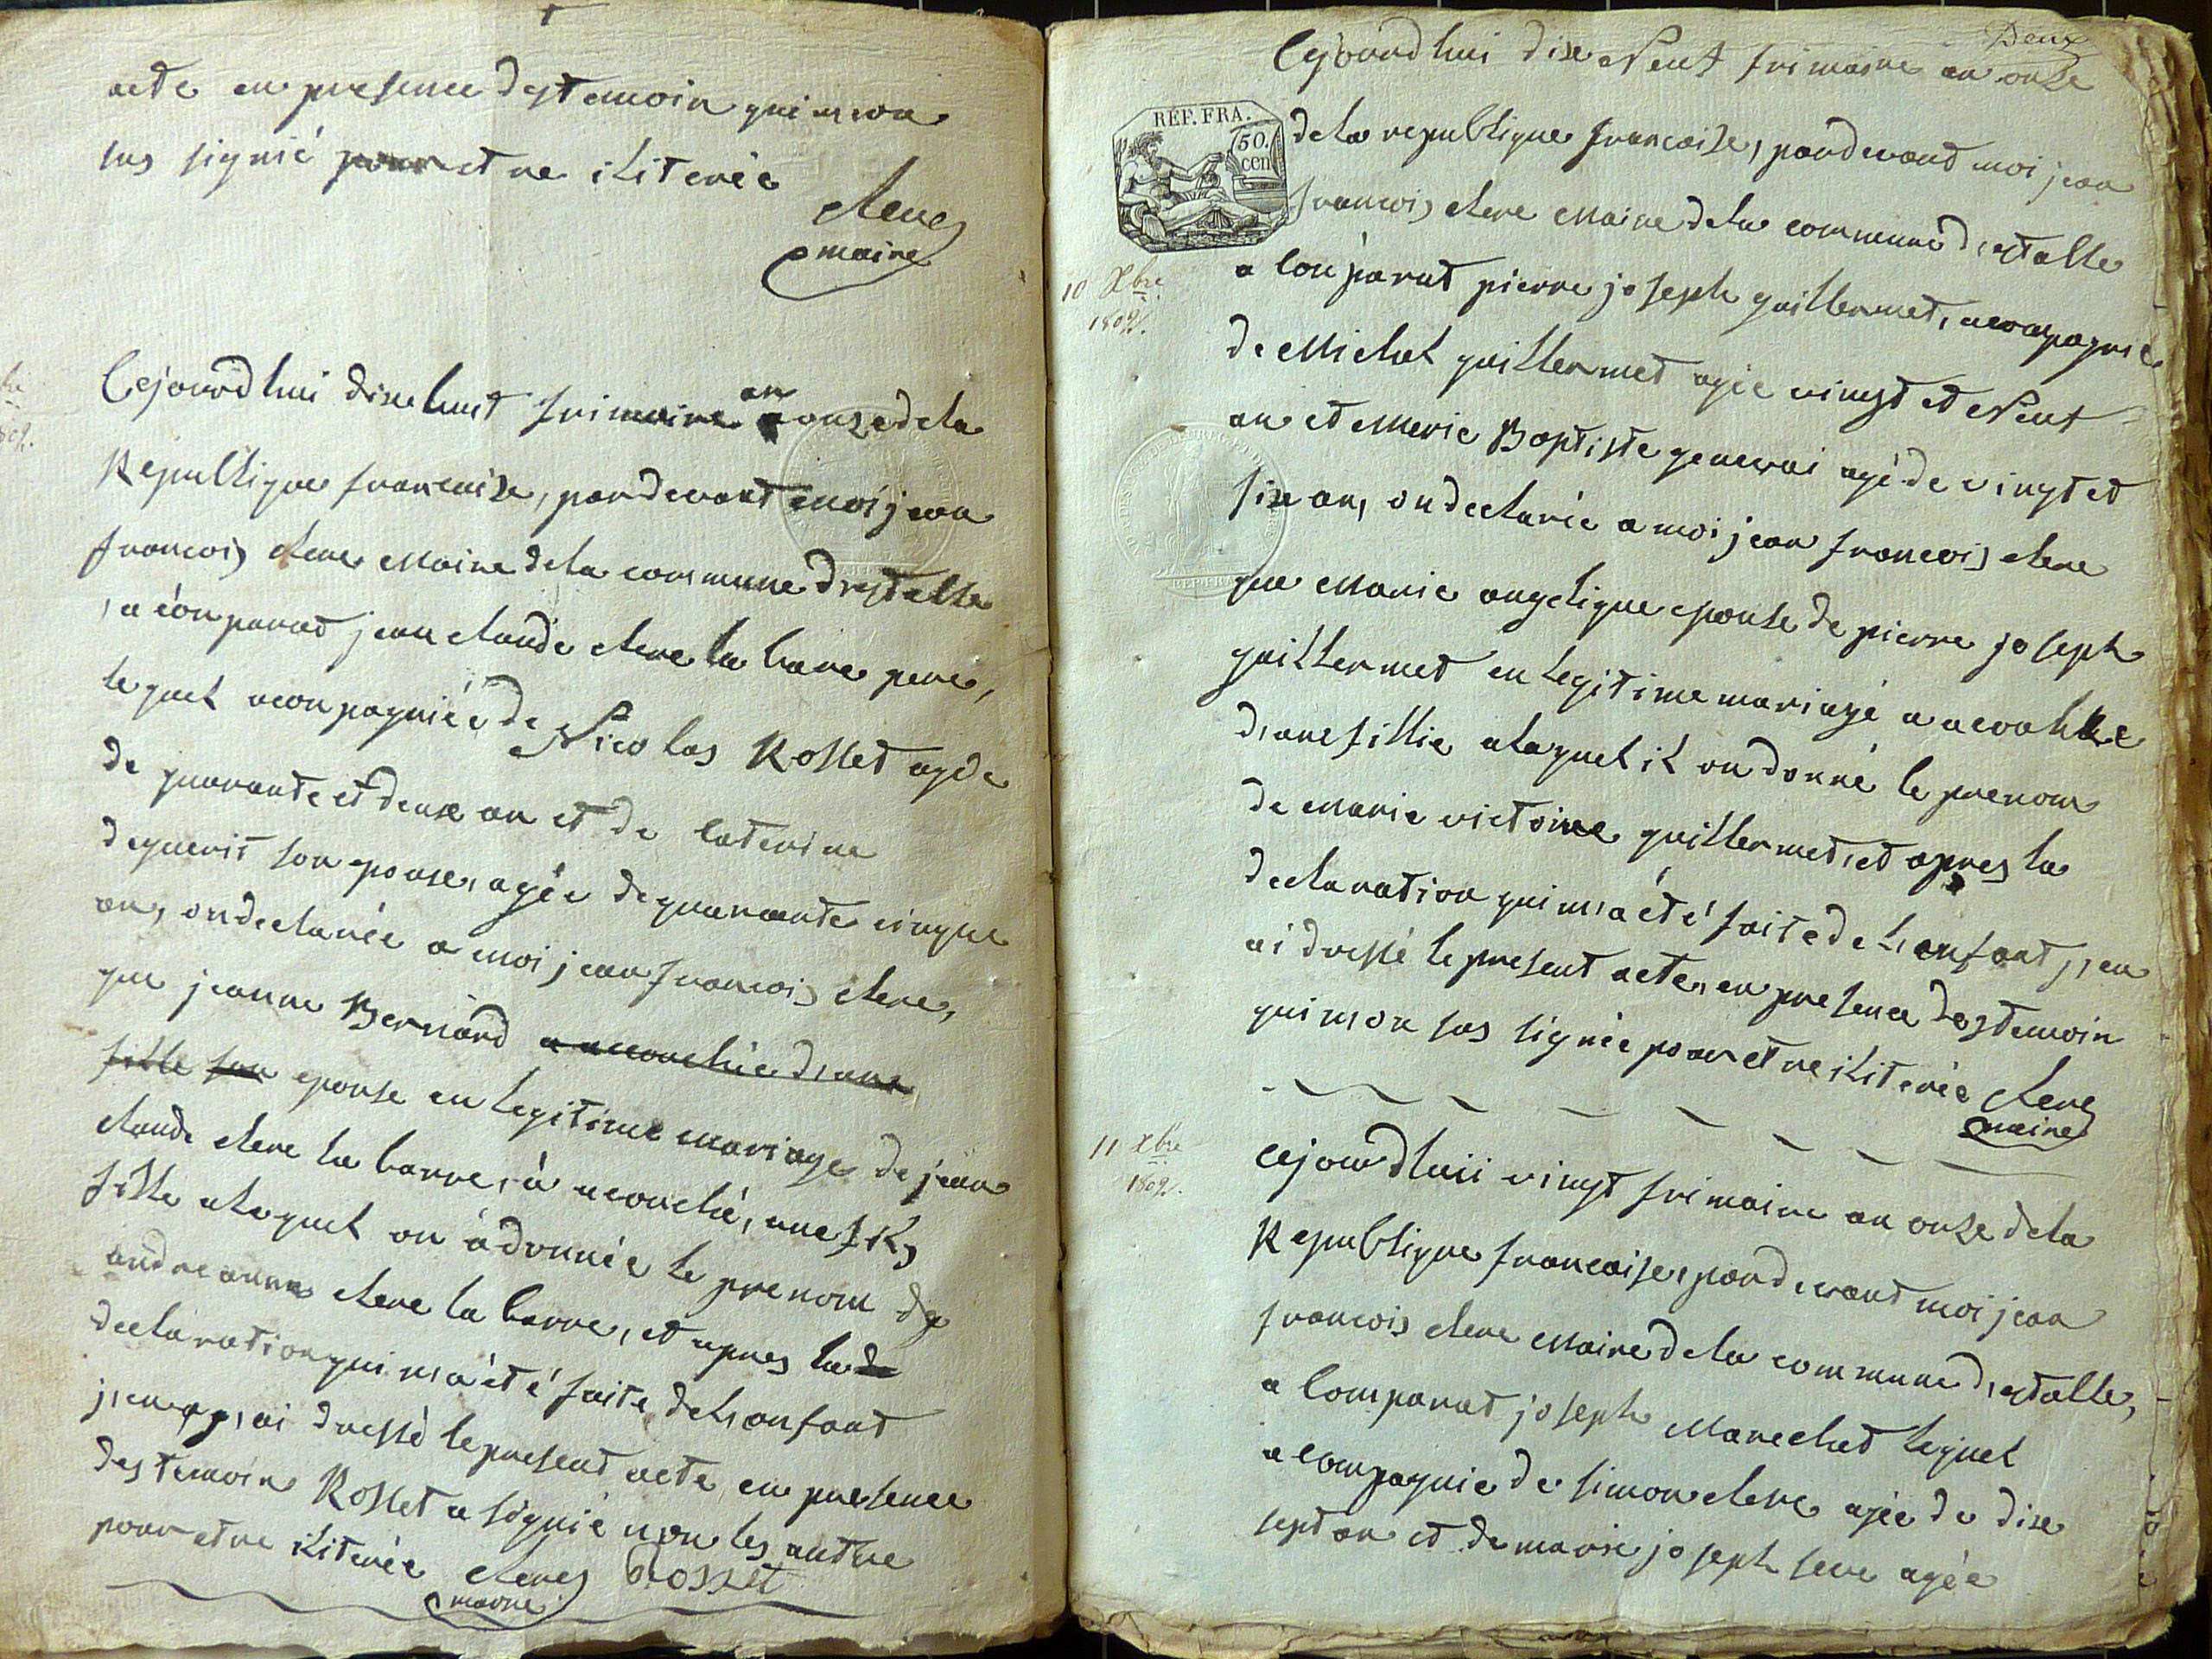 acte en presence destemoin qui m'on
sus signié pour etre iliterée
clerc
maire
Cejourd hui dixe huit frimaire an onze dela
Republique francaise, pardevant moi jean
francois clerc Maire dela commune d'estalle
, a conparut jean claude clerc la bare pere,
lequel aconpagniée de Nicolas Rosset agé de
de quarante et deuxe an et de Caterine
deguerit son epouse, agée de quarante cinque
an, on declarée a moi jean francois clerc,
que jeanne Bernard a acouchée d'une
fille son epouse en legitime mariage de jean
claude clerc la barre, à acouché, une fils
fille alaquel on à donnée le prenom de
andreanne clerc la barre, et apres la de
declaration qui m'a été faite del'enfant
j'en ai dressé lepresent acte en presence
des temoin Rosset a signié non les autre
pour etre iliterée clerc Rosset
maire
Deux
Cejourd hui dixe Neuf frimaire an onze
RÉP. FRA.
50. cen
dela republique francaise, pardevant moi jean
francois clerc Maire dela commune d'estalle
10 Xbre
1802.
a conparut pierre joseph guillermet, acompagnié
de Michel guillermet agée vingt et Neuf
an et Merie Baptiste generai agé de vingt et
sixe an, on declarée a moi jean francois clerc
que Marie angelique epouse de pierre joseph
guillermet en legitime mariagé a acouhée
d'une fillie alaquel il on donné le prenom
de Marie victoire guillermet, et apres la
declaration qui m'a été faite de l'enfant j'en
ai dressé lepresent acte, en presence destemoin
qui m'on sus signée pour etre iliterée clerc
maire
11 Xbre
1802.
cejourdhuii vingt frimaire an onze dela
Republique francaise, pard,evant moi jean
francois clerc Maire dela commune d'estalle,
a Comparut joseph Marechet lequel
acompagnie de simon clerc agée de dixe
sept an et de marie joseph seve agée